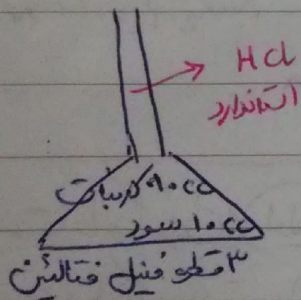 HCl
استاندارد
۹۰cc کربنات
۱۰cc سود
۳ قطره فنیل فتالئین